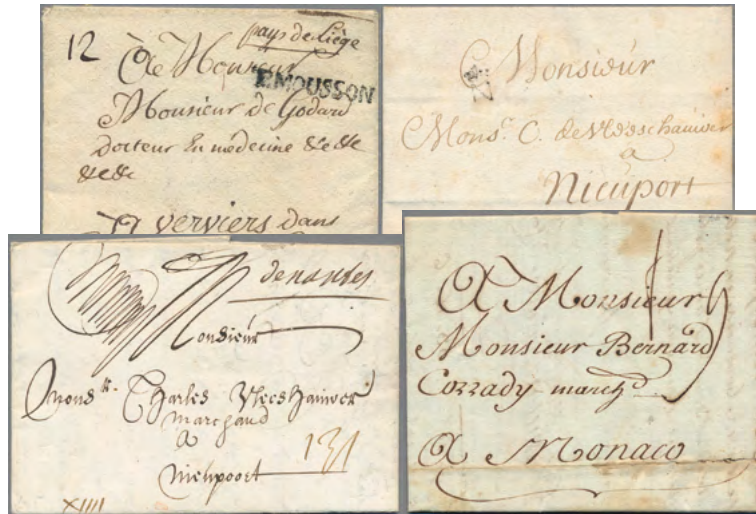 12
pays de Liège
A Monsieur
P.MOUSSON
Monsieur de Godard
docteur En médecine &c &c
&c &c
A verviers dans
A Monsieur
Mons.r C. de
a
Nieuport
de nantes
Monsieur
Mons.r Charles Vleeshauwer
marchand
a
Nieupoort
XIIII
A Monsieur
Monsieur Bernard
Corrady march.d
A Monaco